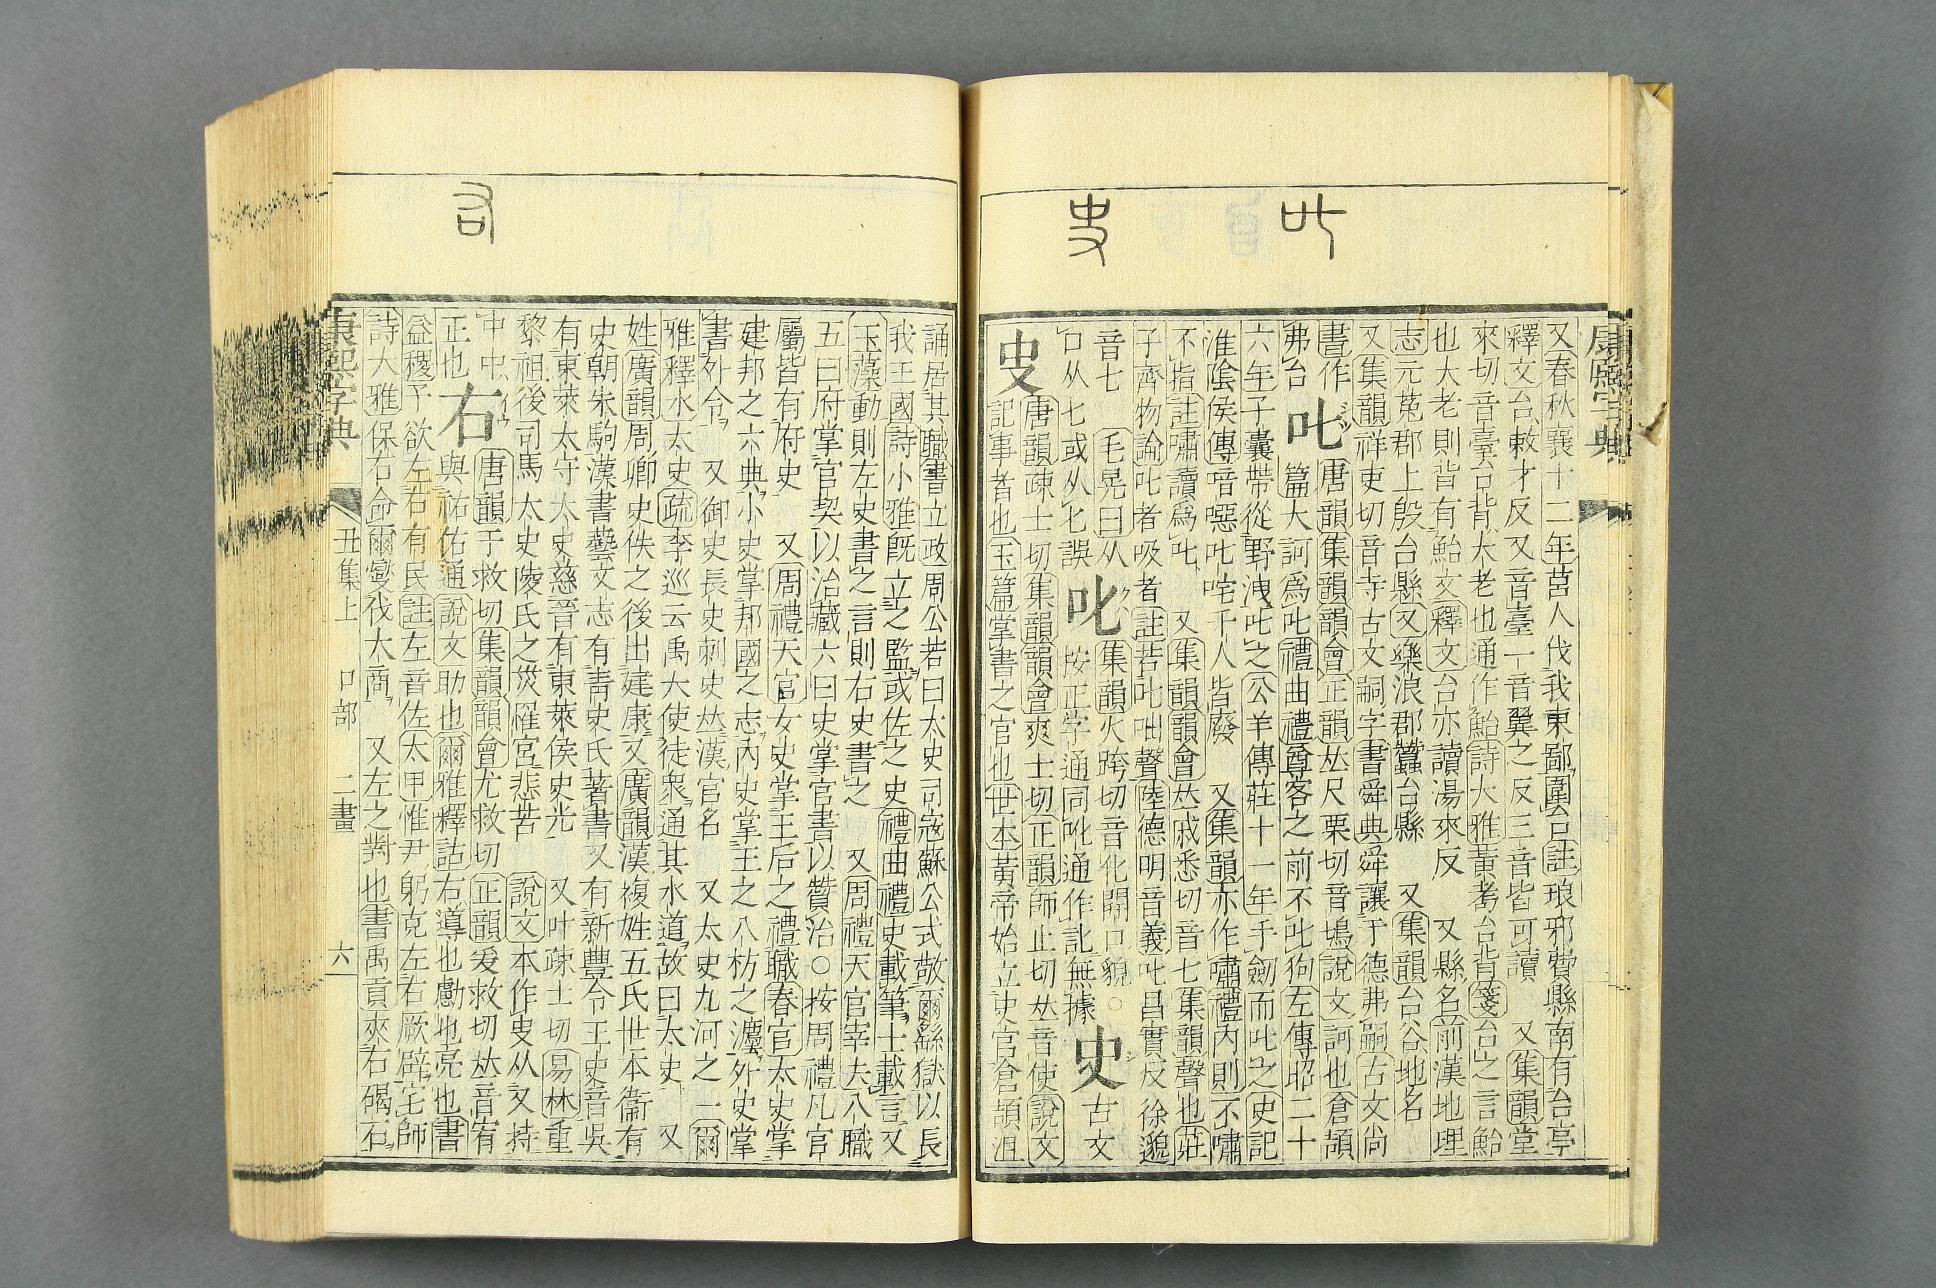 又春秋襄十二年莒人伐我東鄙圍台註琅邪費縣南有台亭
釋文台敕才反又音臺一音翼之反三音皆可讀 又集韻堂
來切音臺台背大老也通作鮐詩大雅黃耇台背箋台之言鮐
也大老則背有鮐文釋文台亦讀湯來反 又縣名前漢地理
志元菟郡上殷台縣又樂浪郡蠶台縣 又集韻台谷地名
又集韻祥吏切音寺古文嗣字書舜典舜讓于德弗嗣古文尚
書作
弗台
叱
叱
唐韻集韻韻會正韻𠀤尺栗切音鴟說文訶也倉頡
篇大訶爲叱禮曲禮尊客之前不叱狗左傳昭二十
六年子囊帶從野洩叱之公羊傳莊十一年手劒而叱之史記
淮隂侯傳喑噁叱咤千人皆廢 又集韻亦作嘯禮內則不嘯
不指註嘯讀爲叱 又集韻韻會𠀤戚悉切音七集韻聲也莊
子齊物論叱者吸者註若叱咄聲陸德明音義叱昌實反徐邈
音七 毛晃曰从
口从七或从匕誤
𠮟
集韻火跨切音化開口貌○
按正字通同吪通作訛無據
史
史
古文
㕜
唐韻疎士切集韻韻會爽士切正韻師止切𠀤音使說文
記事者也玉篇掌書之官也世本黃帝始立史官倉頡沮
誦居其職書立政周公若曰太史司寇蘇公式敬爾繇獄以長
我王國詩小雅旣立之監或佐之史禮曲禮史載筆士載言又
玉藻動則左史書之言則右史書之 又周禮天官宰夫八職
五曰府掌官契以治藏六曰史掌官書以贊治○按周禮凡官
屬皆有府史 又周禮天官女史掌王后之禮職春官太史掌
建邦之六典小史掌邦國之志內史掌王之八枋之灋外史掌
書外令 又御史長史刺史𠀤漢官名 又太史九河之一爾
雅釋水太史疏李巡云禹大使徒衆通其水道故曰太史 又
姓廣韻周卿史佚之後出建康又廣韻漢複姓五氏世本衞有
史朝朱駒漢書藝文志有靑史氏著書又有新豐令王史音吳
有東萊太守太史慈晉有東萊侯史光 又叶疎士切易林重
黎祖後司馬太史陵氏之災罹宮悲苦 說文本作㕜从又持
中中
正也
右
右
唐韻于救切集韻韻會尤救切正韻爰救切𠀤音宥
與祐佑通說文助也爾雅釋詁右導也勴也亮也書
益稷予欲左右有民註左音佐太甲惟尹躬克左右厥辟宅師
詩大雅保右命爾燮伐大商 又左之對也書禹貢夾右碣石
康熙字典 丑集上 口部 二畫 六